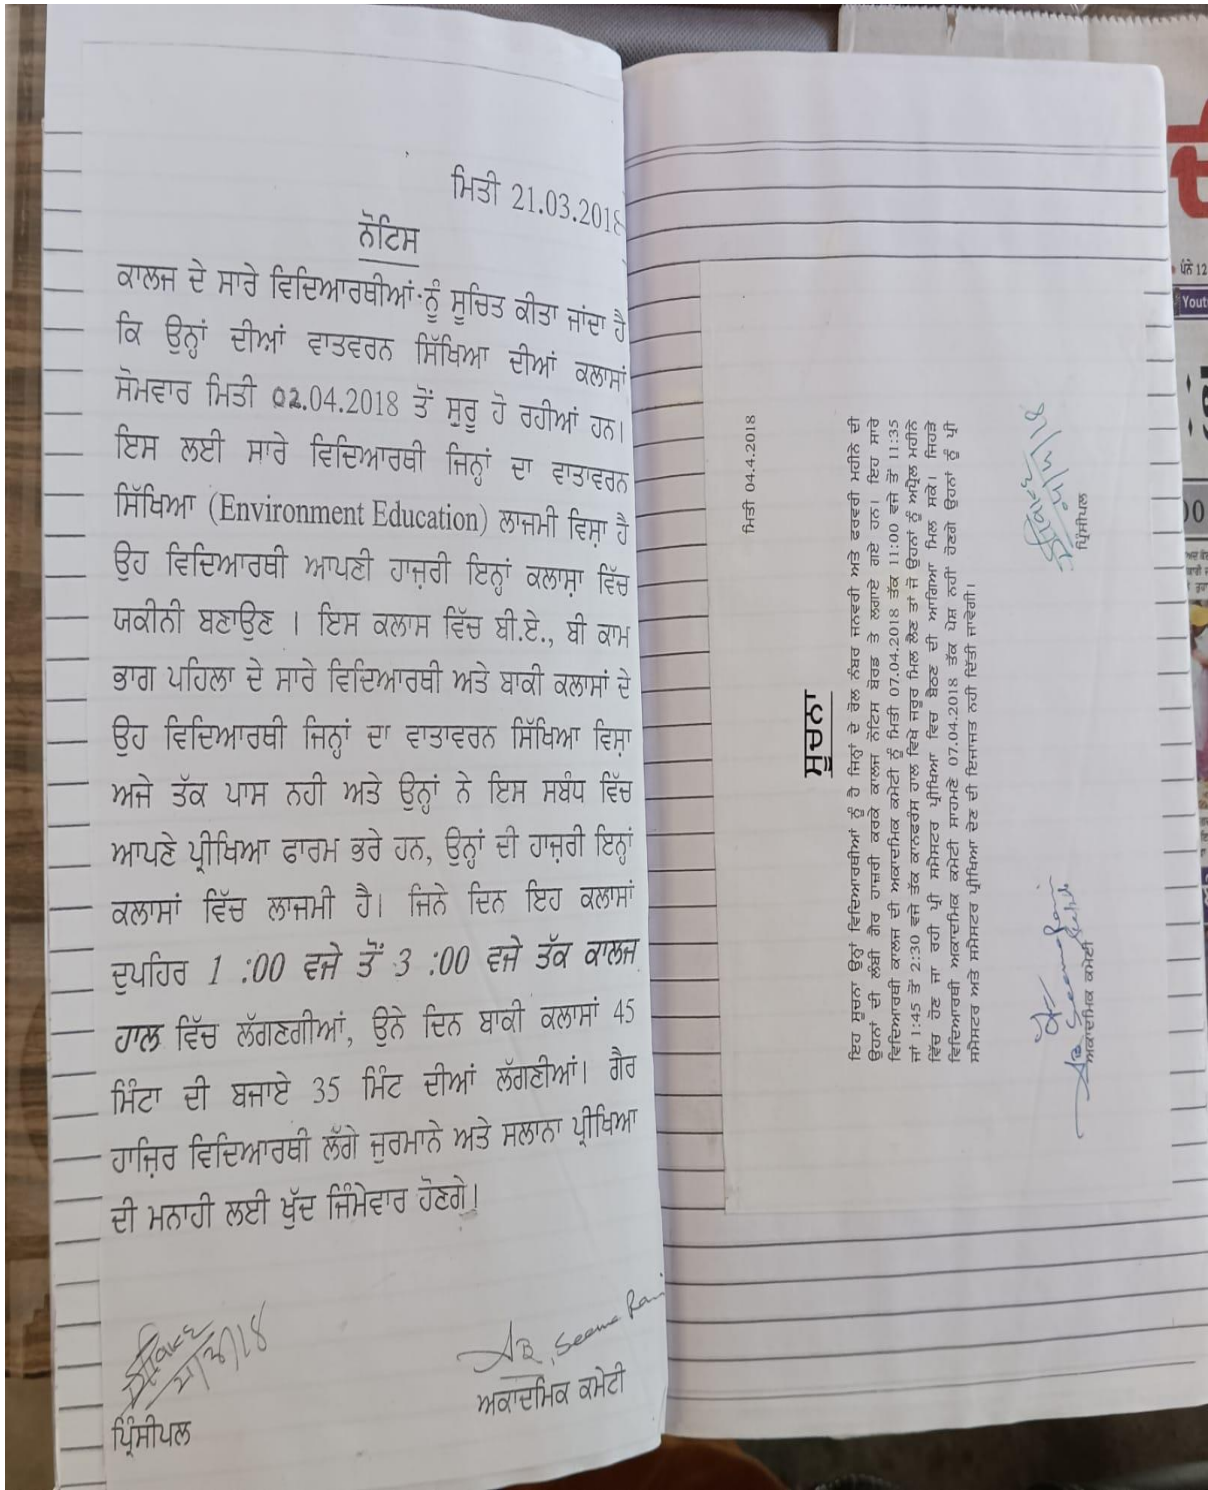 ਮਿਤੀ 21.03.2018
ਨੋਟਿਸ
ਕਾਲਜ ਦੇ ਸਾਰੇ ਵਿਦਿਆਰਥੀਆਂ ਨੂੰ ਸੂਚਿਤ ਕੀਤਾ ਜਾਂਦਾ ਹੈ
ਕਿ ਉਨ੍ਹਾਂ ਦੀਆਂ ਵਾਤਵਰਨ ਸਿੱਖਿਆ ਦੀਆਂ ਕਲਾਸਾਂ
ਸੋਮਵਾਰ ਮਿਤੀ 02.04.2018 ਤੋਂ ਸ਼ੁਰੂ ਹੋ ਰਹੀਆਂ ਹਨ।
ਇਸ ਲਈ ਸਾਰੇ ਵਿਦਿਆਰਥੀ ਜਿਨ੍ਹਾਂ ਦਾ ਵਾਤਾਵਰਨ
ਸਿੱਖਿਆ (Environment Education) ਲਾਜਮੀ ਵਿਸ਼ਾ ਹੈ
ਉਹ ਵਿਦਿਆਰਥੀ ਆਪਣੀ ਹਾਜ਼ਰੀ ਇਨ੍ਹਾਂ ਕਲਾਸ਼ਾ ਵਿੱਚ
ਯਕੀਨੀ ਬਣਾਉਣ । ਇਸ ਕਲਾਸ ਵਿੱਚ ਬੀ.ਏ., ਬੀ ਕਾਮ
ਭਾਗ ਪਹਿਲਾ ਦੇ ਸਾਰੇ ਵਿਦਿਆਰਥੀ ਅਤੇ ਬਾਕੀ ਕਲਾਸਾਂ ਦੇ
ਉਹ ਵਿਦਿਆਰਥੀ ਜਿਨ੍ਹਾਂ ਦਾ ਵਾਤਾਵਰਨ ਸਿੱਖਿਆ ਵਿਸ਼ਾ
ਅਜੇ ਤੱਕ ਪਾਸ ਨਹੀ ਅਤੇ ਉਨ੍ਹਾਂ ਨੇ ਇਸ ਸਬੰਧ ਵਿੱਚ
ਆਪਣੇ ਪ੍ਰੀਖਿਆ ਫਾਰਮ ਭਰੇ ਹਨ, ਉਨ੍ਹਾਂ ਦੀ ਹਾਜ਼ਰੀ ਇਨ੍ਹਾਂ
ਕਲਾਸਾਂ ਵਿੱਚ ਲਾਜਮੀ ਹੈ। ਜਿਨੇ ਦਿਨ ਇਹ ਕਲਾਸਾਂ
ਦੁਪਹਿਰ 1 :00 ਵਜੇ ਤੋਂ 3 :00 ਵਜੇ ਤੱਕ ਕਾਲਜ
ਹਾਲ ਵਿੱਚ ਲੱਗਣਗੀਆਂ, ਉਨੇ ਦਿਨ ਬਾਕੀ ਕਲਾਸਾਂ 45
ਮਿੰਟਾ ਦੀ ਬਜਾਏ 35 ਮਿੰਟ ਦੀਆਂ ਲੱਗਣੀਆਂ। ਗੈਰ
ਹਾਜ਼ਿਰ ਵਿਦਿਆਰਥੀ ਲੱਗੇ ਜੁਰਮਾਨੇ ਅਤੇ ਸਲਾਨਾ ਪ੍ਰੀਖਿਆ
ਦੀ ਮਨਾਹੀ ਲਈ ਖੁੱਦ ਜਿੰਮੇਵਾਰ ਹੋਣਗੇ।
Seema Rani
ਪ੍ਰਿੰਸੀਪਲ
ਅਕਾਦਮਿਕ ਕਮੇਟੀ
ਮਿਤੀ 04.4.2018
ਸੂਚਨਾ
ਇਹ ਸੂਚਨਾ ਉਨ੍ਹਾਂ ਵਿਦਿਆਰਥੀਆਂ ਨੂੰ ਹੈ ਜਿਨ੍ਹਾਂ ਦੇ ਰੋਲ ਨੰਬਰ ਜਨਵਰੀ ਅਤੇ ਫਰਵਰੀ ਮਹੀਨੇ ਦੀ
ਉਹਨਾਂ ਦੀ ਲੰਬੀ ਗੈਰ ਹਾਜ਼ਰੀ ਕਰਕੇ ਕਾਲਜ ਨੋਟਿਸ ਬੋਰਡ ਤੇ ਲਗਾਏ ਗਏ ਹਨ। ਇਹ ਸਾਰੇ
ਵਿਦਿਆਰਥੀ ਕਾਲਜ ਦੀ ਅਕਾਦਮਿਕ ਕਮੇਟੀ ਨੂੰ ਮਿਤੀ 07.04.2018 ਤੱਕ 11:00 ਵਜੇ ਤੋਂ 11:35
ਜਾਂ 1:45 ਤੋਂ 2:30 ਵਜੇ ਤੱਕ ਕਾਨਫਰੰਸ ਹਾਲ ਵਿਖੇ ਜਰੂਰ ਮਿਲ ਲੈਣ ਤਾਂ ਜੋ ਉਹਨਾਂ ਨੂੰ ਅਪ੍ਰੈਲ ਮਹੀਨੇ
ਵਿੱਚ ਹੋਣ ਜਾ ਰਹੀ ਪ੍ਰੀ ਸਮੈਸਟਰ ਪ੍ਰੀਖਿਆ ਵਿਚ ਬੈਠਣ ਦੀ ਆਗਿਆ ਮਿਲ ਸਕੇ। ਜਿਹੜੇ
ਵਿਦਿਆਰਥੀ ਅਕਾਦਮਿਕ ਕਮੇਟੀ ਸਾਹਮਣੇ 07.04.2018 ਤੱਕ ਪੇਸ਼ ਨਹੀਂ ਹੋਣਗੇ ਉਹਨਾਂ ਨੂੰ ਪ੍ਰੀ
ਸਮੈਸਟਰ ਅਤੇ ਸਮੈਸਟਰ ਪ੍ਰੀਖਿਆ ਦੇਣ ਦੀ ਇਜਾਜਤ ਨਹੀ ਦਿੱਤੀ ਜਾਵੇਗੀ।
Seema Rani
ਅਕਾਦਮਿਕ ਕਮੇਟੀ
ਪ੍ਰਿੰਸੀਪਲ
ਪੰਨੇ 12